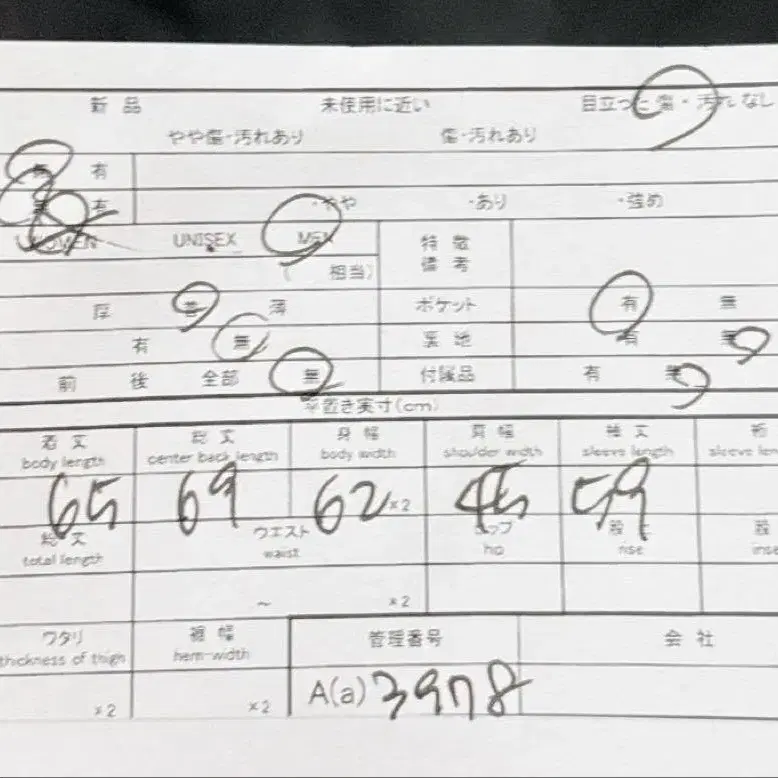 新品 未使用に近い 目立った傷・汚れなし
やや傷・汚れあり 傷・汚れあり
有
有 ・やや ・あり ・強め
WOMEN UNISEX MEN 特徴
( 相当) 備考
厚 普 薄 ポケット 有 無
有 無 裏地 有 無
前 後 全部 無 付属品 有 無
平置き実寸(cm)
着丈 総丈 身幅 肩幅 袖丈 裄
body length center back length body width shoulder width sleeve length sleeve len
65 69 62 ×2 45 59
総丈 ウエスト ヒップ 股上 股
total length waist hip rise inse
~ ×2
ワタリ 裾幅 管理番号 会社
thickness of thigh hem-width
×2 ×2 A(a) 3978